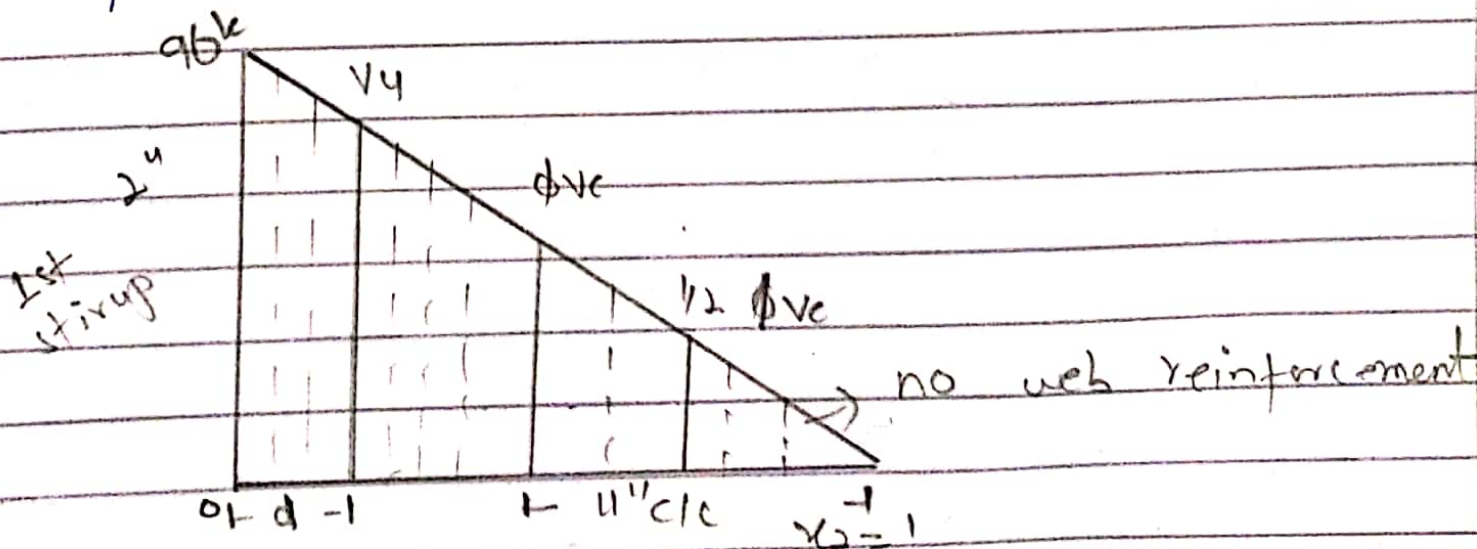 96k
Vu
2"
ϕVc
1st
stirup
1/2 ϕVc
no web reinforcement
d
11" c/c